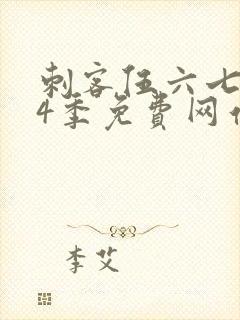 刺客伍六七
4季免费网
李艾